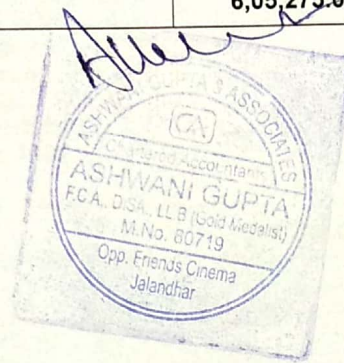 ASHWANI GUPTA & ASSOCIATES
CA
Chartered Accountants
ASHWANI GUPTA
F.C.A., D.I.SA., LL.B (Gold Medalist)
M.No. 80719
Opp. Friends Cinema
Jalandhar